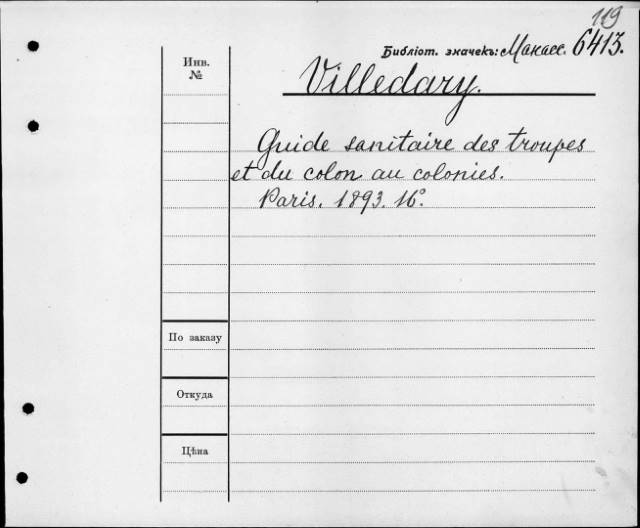 119
Библіот. значекъ: Макасс. 6413.
Инв.
№
Villedary.
Guide sanitaire des troupes
et du colon au colonies.
Paris. 1893. 16º.
По заказу
Откуда
Цѣна